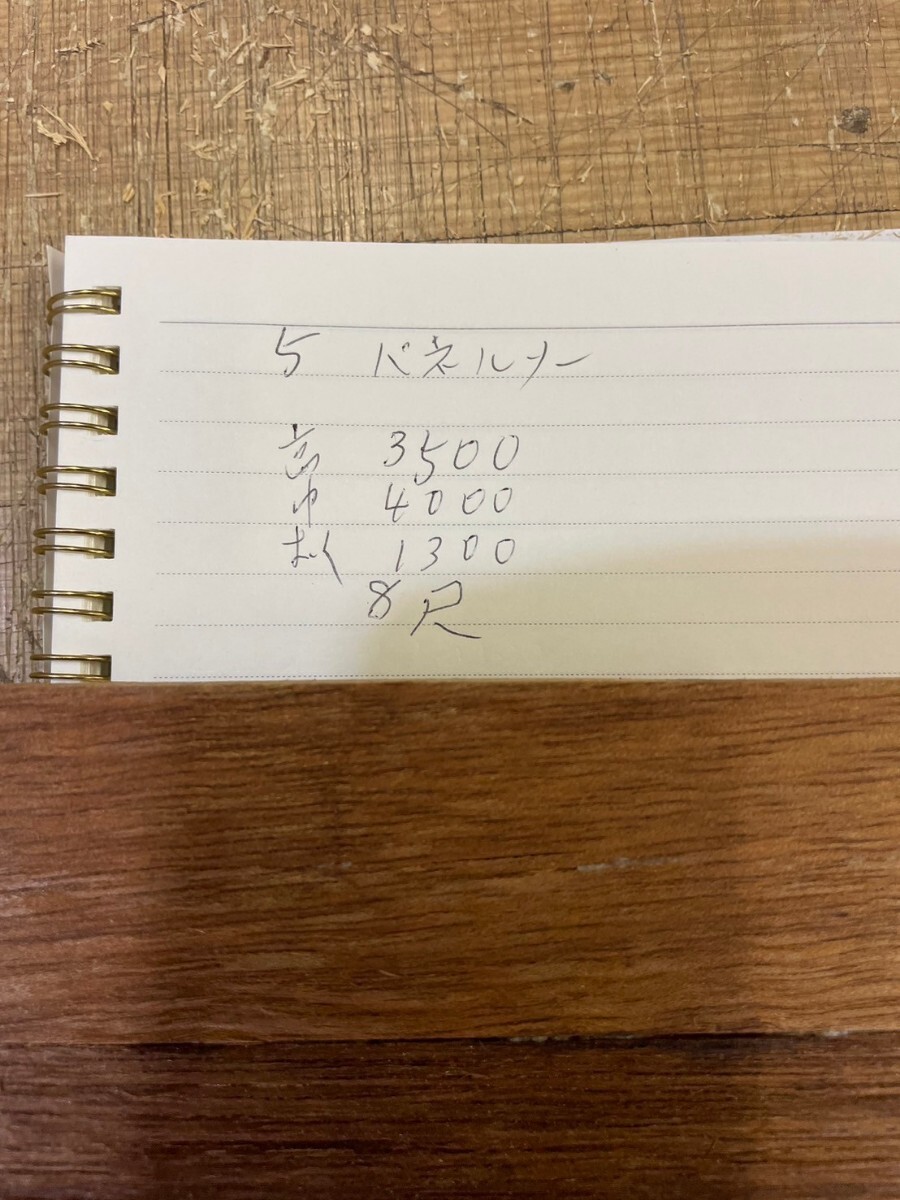 5 パネルソー
高 3500
巾 4000
1300
8尺